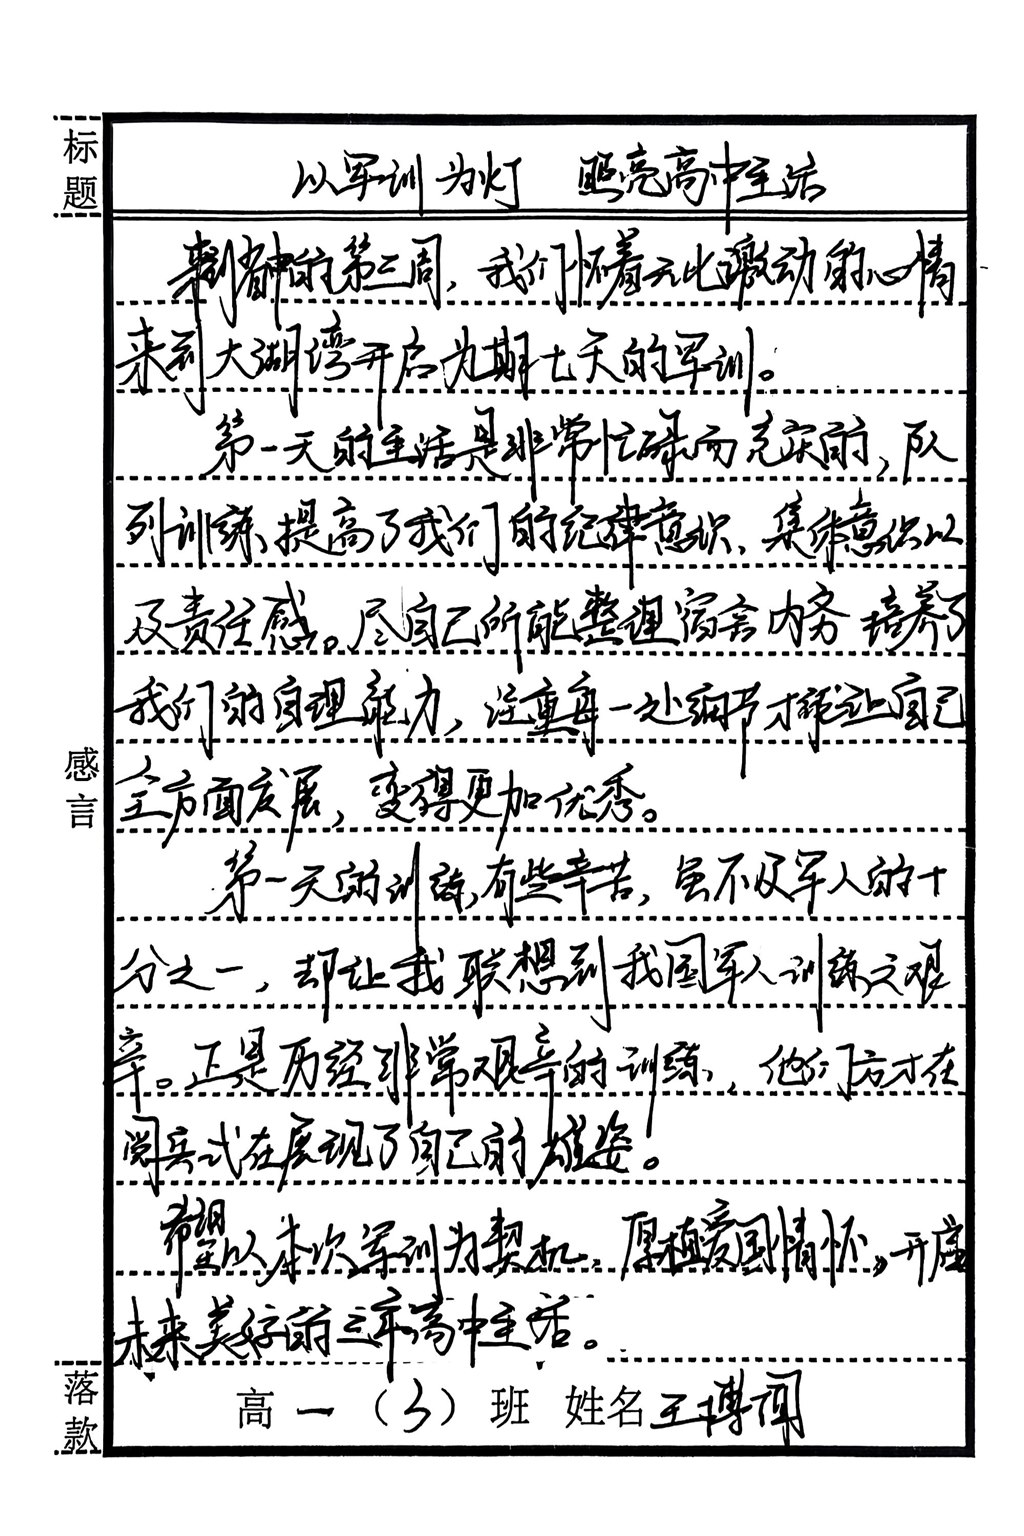 标题
以军训为灯 照亮高中生活
来到省中的第二周，我们怀着无比激动的心情
来到大湖湾开启为期七天的军训。
第一天的生活是非常忙碌而充实的，队
列训练，提高了我们的纪律意识、集体意识以
及责任感。尽自己所能整理宿舍内务培养了
我们的自理能力，注重每一处细节才能让自己
全方面发展，变得更加优秀。
感言
第一天的训练，有些辛苦，虽不及军人的十
分之一，却让我联想到我国军人训练之艰
辛。正是历经非常艰辛的训练，他们方才在
阅兵式在展现了自己的雄姿。
希望以本次军训为契机，厚植爱国情怀，开启
未来美好的三年高中生活。
落款
高一（3）班 姓名 王博闻